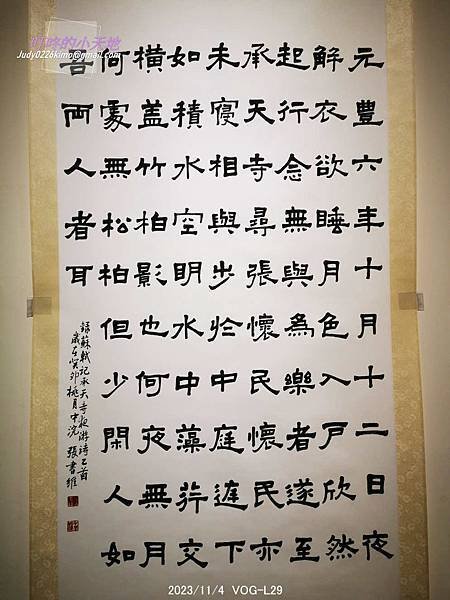 叮咚的小天地
Judy0226kimo@gmail.com
元豐六年十月十二日夜
解衣欲睡月色入戶欣然
起行念無與為樂者遂至
承天寺尋張懷民懷民亦
未寢相與步於中庭庭下
如積水空明水中藻荇交
橫蓋竹柏影也何夜無月
何處無松柏但少閑人如
吾兩人者耳
錄蘇軾記承天寺夜遊詩乙首
歲在癸卯桃月中浣 張書維
2023/11/4 VOG-L29